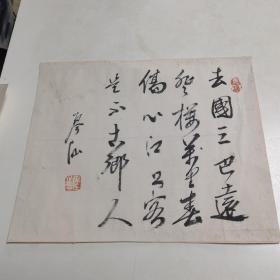 去國三巴遠
登樓萬里春
傷心江上客
是不古鄉人
仙